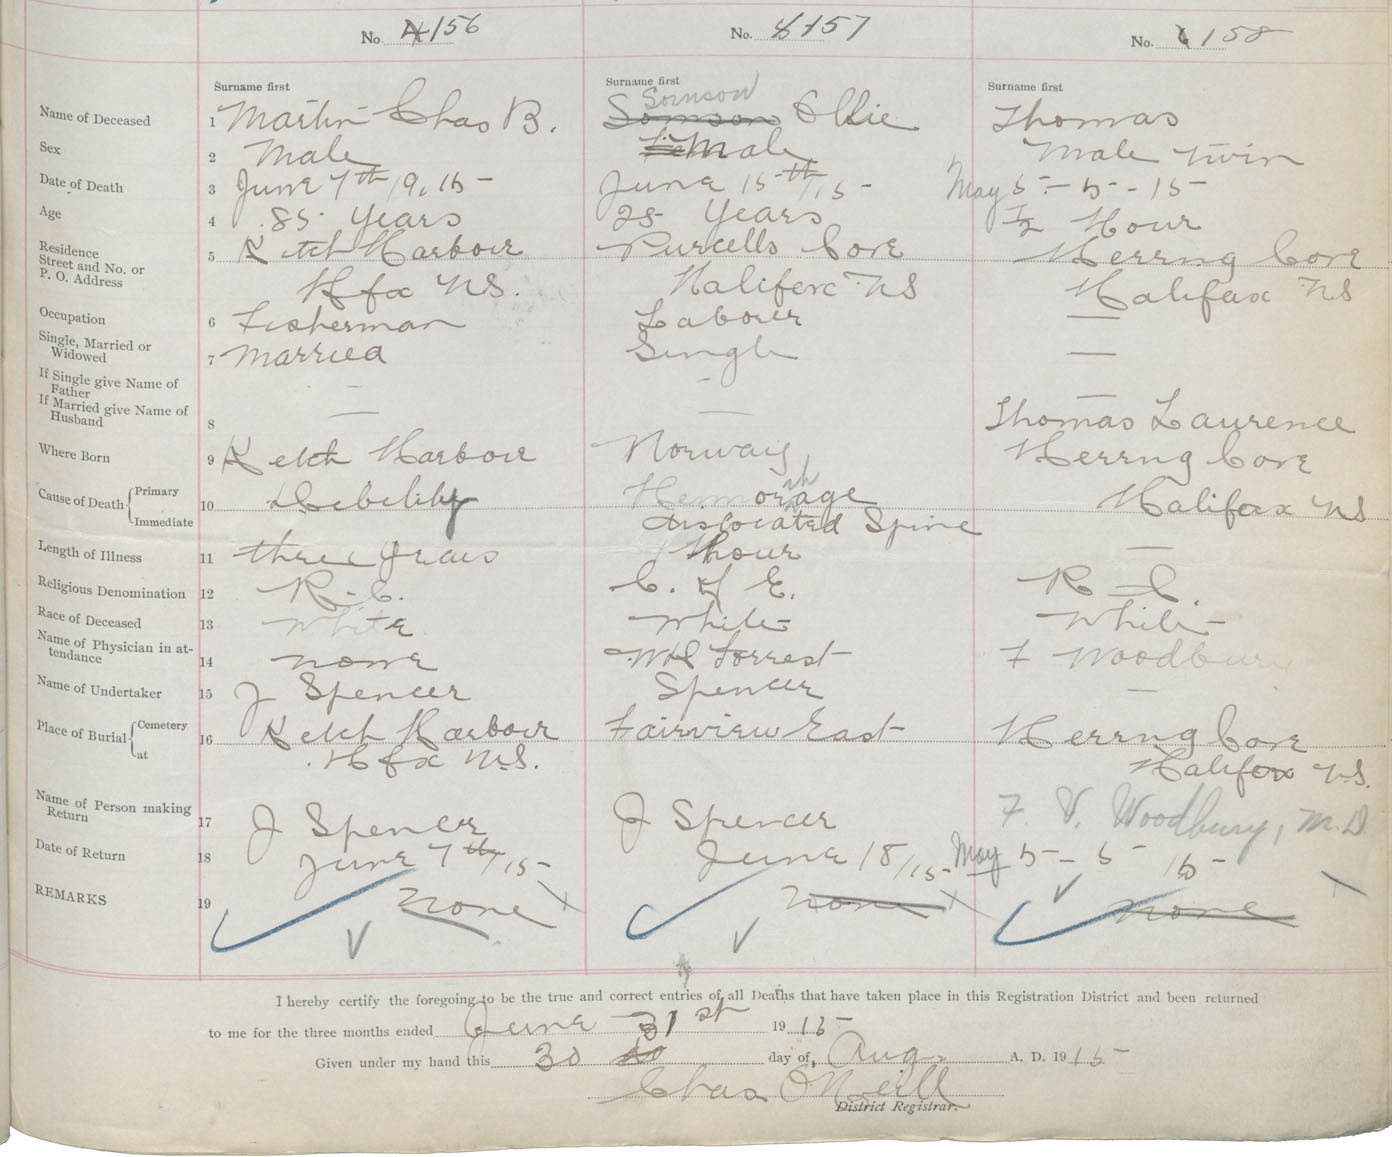 No. 4156 No. 6157 No. 6158
Surname first Surname first Surname first
Name of Deceased 1 Martin Chas B. Somson Somson Ollie Thomas
Sex 2 Male FeMale Male Twin
Date of Death 3 June 7th 19,15- June 15th/15- May 5-5-15-
Age 4 .85 Years 25 Years 1/2 Hour
Residence Street and No. or P. O. Address 5 Ketch Harbour Purcells Cove Herrng Cove
Hfx NS. Halifax NS Halifax NS
Occupation 6 Fisherman Labourer —
Single, Married or Widowed 7 Married Single —
If Single give Name of Father - - —
If Married give Name of Husband 8 — — Thomas Laurence
Where Born 9 Ketch Harbour Norway Herrng Cove
Cause of Death { Primary 10 Debelity Hemorhage Halifax NS
Immediate dislocated Spine
Length of Illness 11 three years 1 hour —
Religious Denomination 12 R-C. C. of E. R-C.
Race of Deceased 13 White White White-
Name of Physician in attendance 14 none Forrest F Woodbury
Name of Undertaker 15 J Spencer Spencer —
Place of Burial { Cemetery 16 Ketch Harbour Fairview East Herrng Cove
at Hfx N.S. Halifax N.S.
Name of Person making Return 17 J Spencer J Spencer F. V. Woodbury, M.D.
Date of Return 18 June 7th/15- June 18/15- May 5-5-15-
REMARKS 19 none none none
I hereby certify the foregoing to be the true and correct entries of all Deaths that have taken place in this Registration District and been returned
to me for the three months ended June 31st 1915-
Given under my hand this 30 day of, Aug. A. D. 1915-
Chas O'Neill
District Registrar.